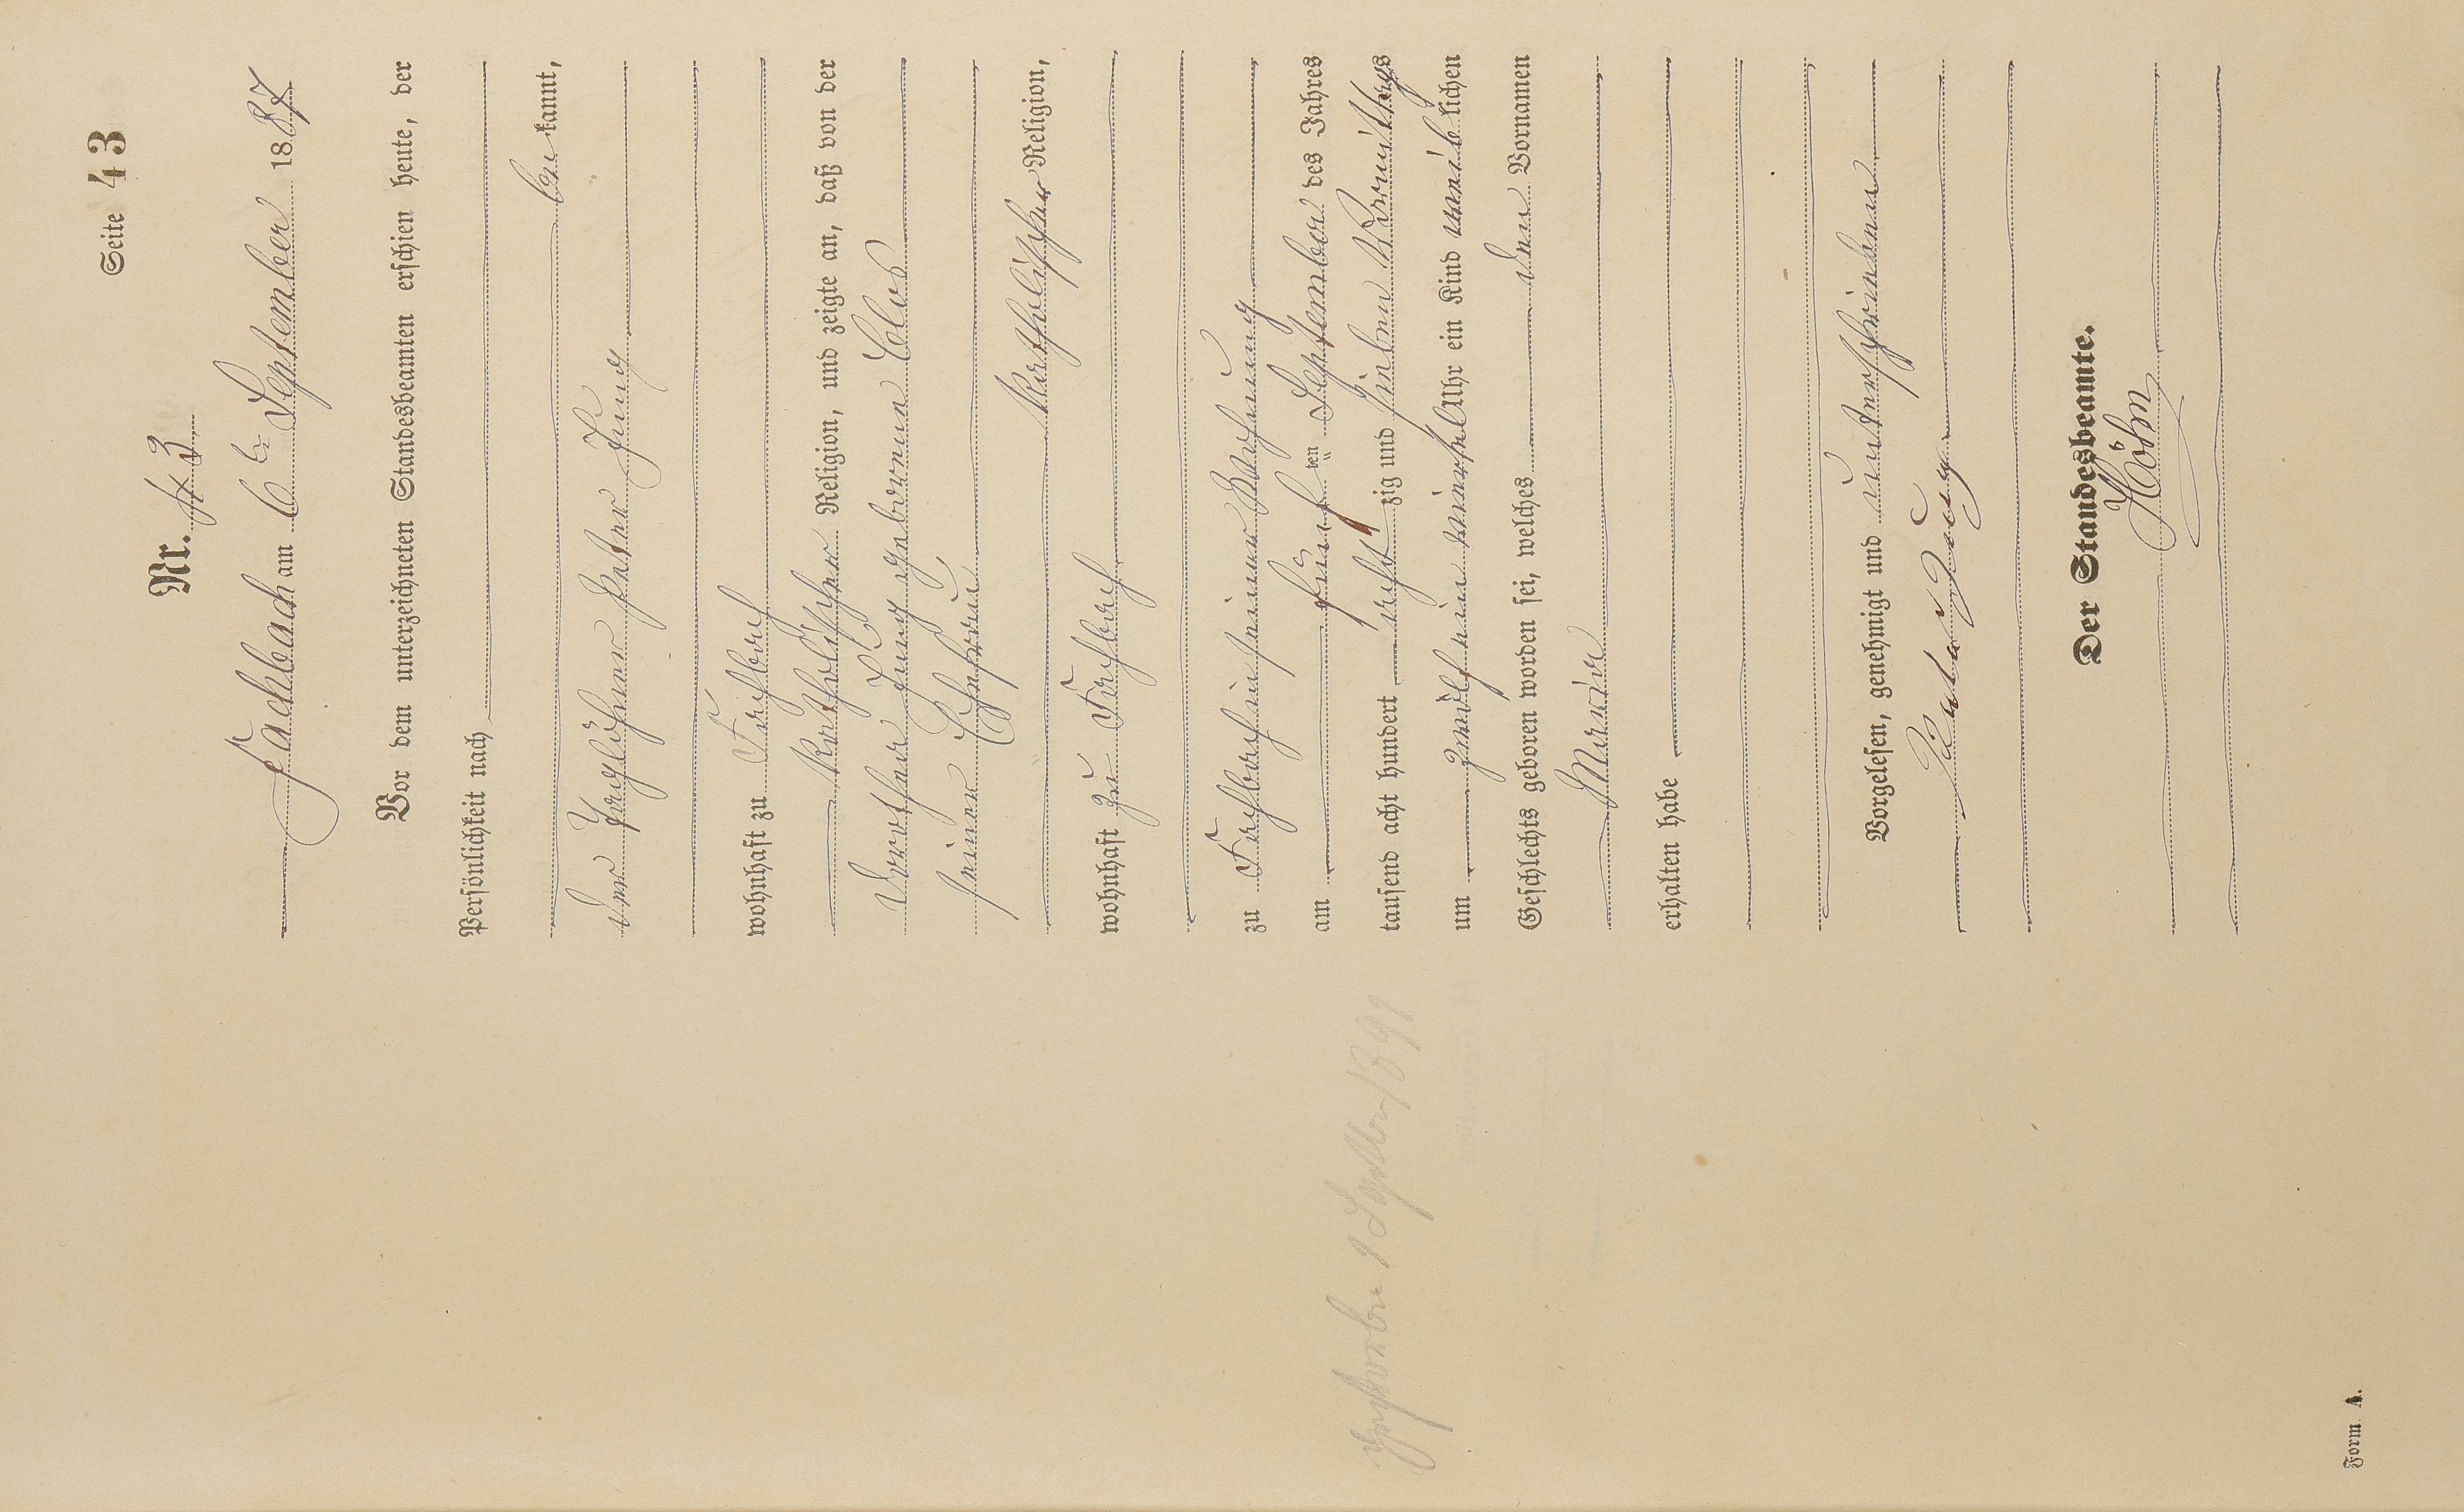 Seite 43
Nr. 43.
Fachbach am 6ten September 1887
Vor dem unterzeichneten Standesbeamten erschien heute, der
Persönlichkeit nach
be kannt,
der Taglöhner Peter Jung
wohnhaft zu Fachbach
katholischer Religion, und zeigte an, daß von der
Dorothea Jung geborenen Clos
seiner Ehefrau
katholischer Religion,
wohnhaft zu Fachbach
zu Fachbach in seiner Wohnung
am fünf ten September des Jahres
tausend acht hundert acht zig und sieben Vormittags
um zwölf ein viertel Uhr ein Kind weib lichen
Geschlechts geboren worden sei, welches den Vornamen
Maria
erhalten habe
Vorgelesen, genehmigt und unterschrieben
Peter Jung
Der Standesbeamte.
Höhn
Gestorben 1 Septbr 1891
Form A.